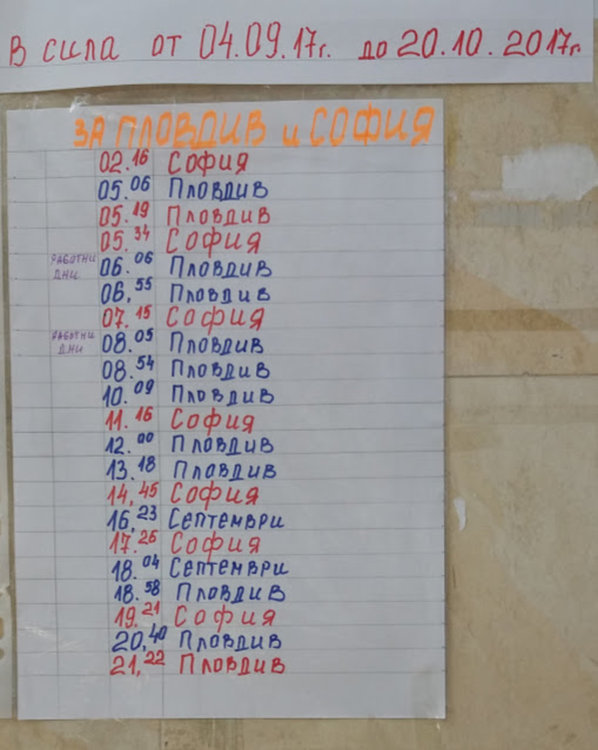 В сила от 04.09.17г. до 20.10.2017г.
ЗА ПЛОВДИВ и СОФИЯ
02.16 СОФИЯ
05.06 ПЛОВДИВ
05.19 ПЛОВДИВ
05.34 СОФИЯ
РАБОТНИ ДНИ 06.06 ПЛОВДИВ
06,55 ПЛОВДИВ
07.15 СОФИЯ
РАБОТНИ ДНИ 08.05 ПЛОВДИВ
08.54 ПЛОВДИВ
10.09 ПЛОВДИВ
11.16 СОФИЯ
12.00 ПЛОВДИВ
13.18 ПЛОВДИВ
14,45 СОФИЯ
16,23 СЕПТЕМВРИ
17.26 СОФИЯ
18.04 СЕПТЕМВРИ
18.58 ПЛОВДИВ
19.21 СОФИЯ
20,40 ПЛОВДИВ
21,22 ПЛОВДИВ